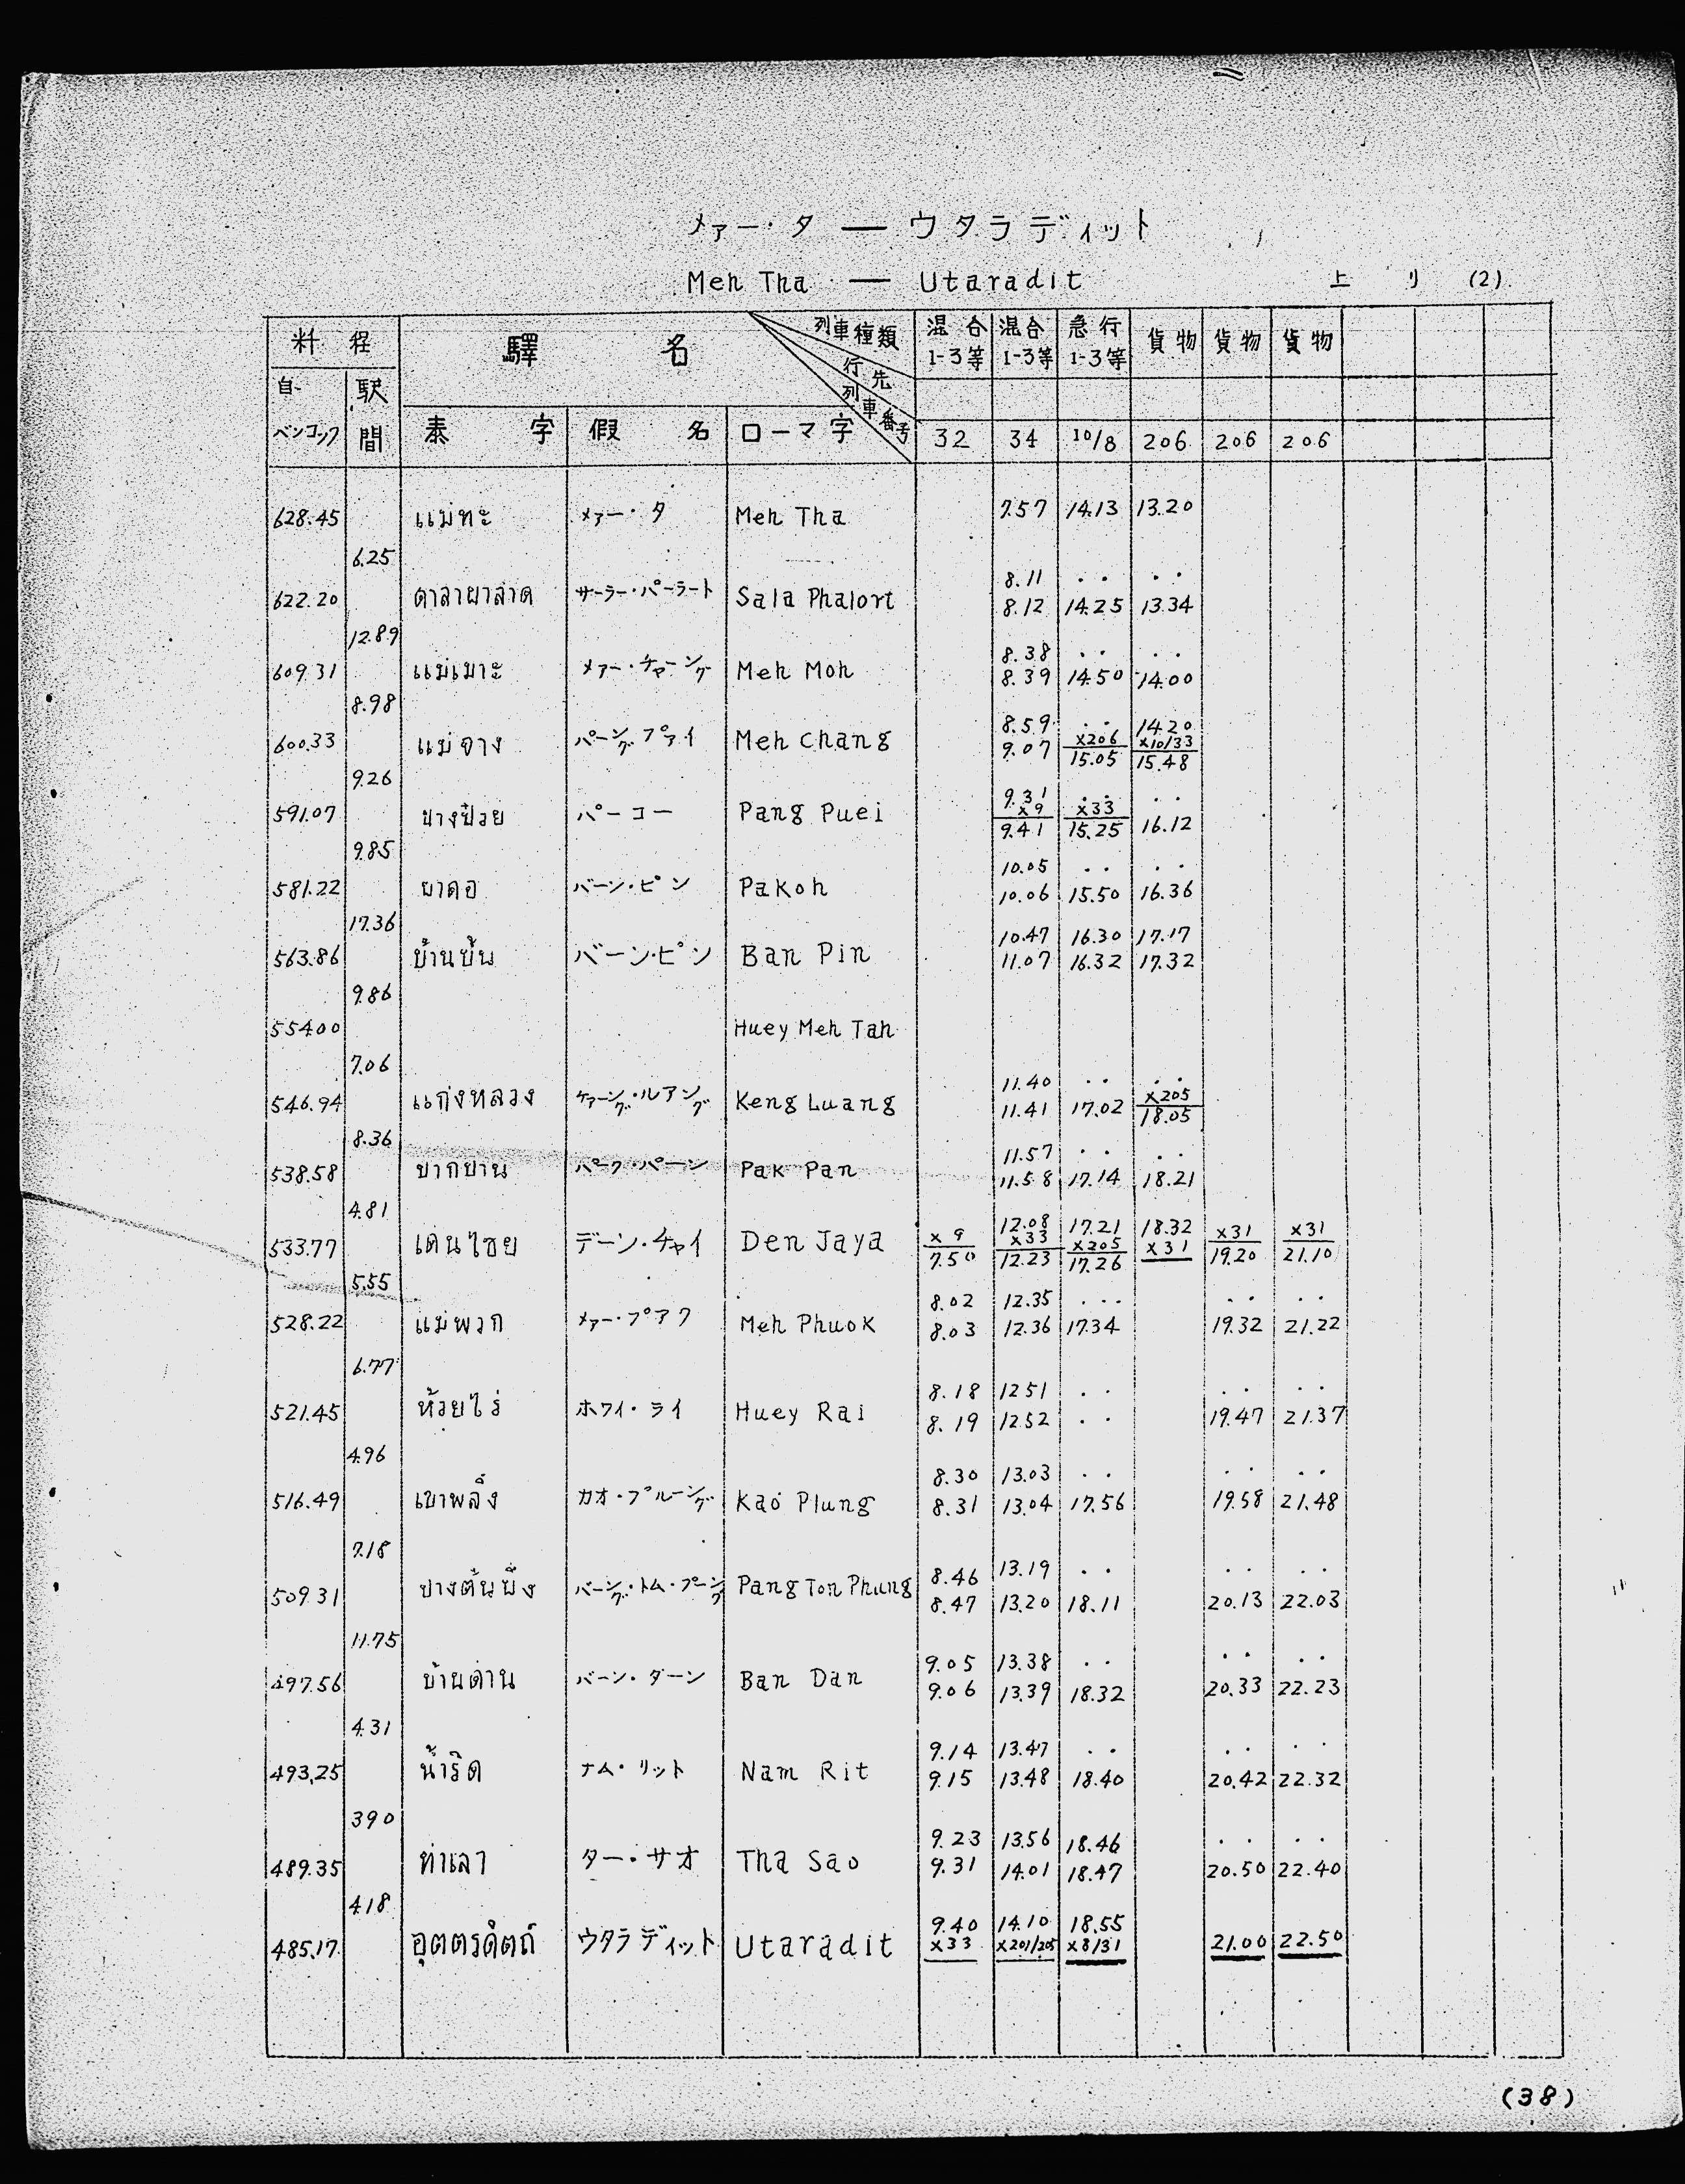 メァー・タ — ウタラディット
Meh Tha — Utaradit 上り (2)
料程 驛名 列車種類 混合 1-3等 混合 1-3等 急行 1-3等 貨物 貨物 貨物
行先
自ベンコック 駅間 泰字 假名 ローマ字 列車番号 32 34 10/8 206 206 206
628.45 แม่ทะ メァー・タ Meh Tha 7.57 14.13 13.20
6.25
8.11 . . . .
622.20 ศาลาผาลาด サーラー・パーラート Sala Phalort 8.12 14.25 13.34
12.89
8.38 . . . .
609.31 แม่เมาะ メァー・チャーング Meh Moh 8.39 14.50 14.00
8.98
8.59 . . 14.20
600.33 แม่จาง パーング プァイ Meh Chang 9.07 x206 15.05 x10/33 15.48
9.26
9.31 . . . .
591.07 ปางป๋วย パーコー Pang Puei x9 9.41 x33 15.25 16.12
9.85
10.05 . . . .
581.22 ผาคอ バーン・ピン Pakoh 10.06 15.50 16.36
17.36
10.47 16.30 17.17
563.86 บ้านปิ่น バーン・ピン Ban Pin 11.07 16.32 17.32
9.86
554.00 Huey Meh Tah
7.06
11.40 . . . .
546.94 แก่งหลวง ケァーング・ルアング Keng Luang 11.41 17.02 x205 18.05
8.36
11.57 . . . .
538.58 ปากปาน パーク・パーン Pak Pan 11.58 17.14 18.21
4.81
12.08 17.21 18.32
533.77 เด่นไชย デーン・チャイ Den Jaya x9 7.50 x33 12.23 x205 17.26 x31 x31 19.20 x31 21.10
5.55
8.02 12.35 . . . . . . .
528.22 แม่พวก メァー・プアク Meh Phuok 8.03 12.36 17.34 19.32 21.22
6.77
8.18 12.51 . . . . . .
521.45 ห้วยไร่ ホワイ・ライ Huey Rai 8.19 12.52 . . 19.47 21.37
4.96
8.30 13.03 . . . . . .
516.49 เขาพลึง カオ・プルーング Kao Plung 8.31 13.04 17.56 19.58 21.48
7.18
8.46 13.19 . . . . . .
509.31 ปางต้นผึ้ง バーング・トム・プーング Pang Ton Phung 8.47 13.20 18.11 20.13 22.03
11.75
9.05 13.38 . . . . . .
497.56 บ้านด่าน バーン・ダーン Ban Dan 9.06 13.39 18.32 20.33 22.23
4.31
9.14 13.47 . . . . . .
493.25 น้ำริด ナム・リット Nam Rit 9.15 13.48 18.40 20.42 22.32
3.90
9.23 13.56 18.46 . . . .
489.35 ท่าเสา ター・サオ Tha Sao 9.31 14.01 18.47 20.50 22.40
4.18
9.40 14.10 18.55
485.17 อุตตรดิตถ์ ウタラディット Utaradit x33 x201/205 x8/31 21.00 22.50
(38)